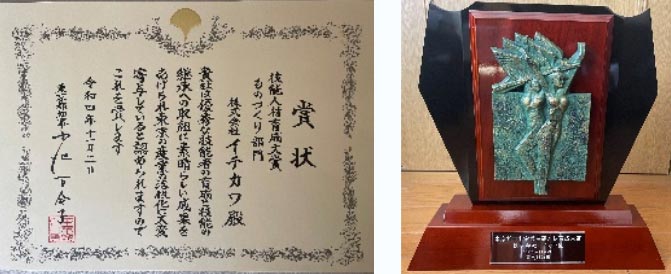 賞状
技能人材育成大賞
ものづくり部門
株式会社 イチカワ殿
貴社は優秀な技能者の育成と技能の
継承への取組に素晴らしい成果を
あげられ東京の産業の活性化に大変
寄与していると認められますので
これを賞します
令和四年
東京都知事 小池百合子